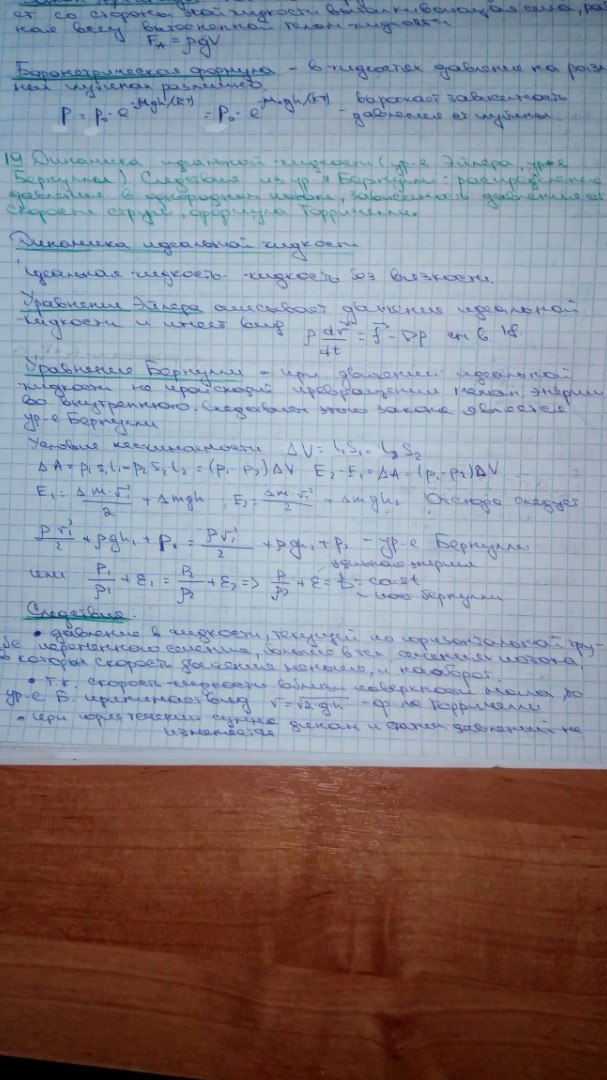 ет со стороны этой жидкости выталкивающая сила, рав
ная весу вытесненной телом жидкости
F_A = ρgV
Барометрическая формула – в жидкостях давление на раз
ной глубинах различно.
P = P₀ · e^(-Mgh/(RT)) = P₀ · e^(-m₀gh/(kT)) – выражает зависимость
давления от глубины.
19 Динамика идеальной жидкости (ур-е Эйлера, ур-е
Бернулли). Следствия из ур-я Бернулли: распределение
давления в однородном потоке, зависимость давления от
скорости струи, формула Торричелли.
Динамика идеальной жидкости
Идеальная жидкость – жидкость без вязкости.
Уравнение Эйлера описывает движение идеальной
жидкости и имеет вид ρ dv/dt = f – ∇p см в. 18.
Уравнение Бернулли – при движении идеальной
жидкости не происходит превращения механ. энергии
во внутреннюю. Следствием этого закона является
ур-е Бернулли
Условие неразрывности ΔV = l₁S₁ = l₂S₂
ΔA = p₁S₁l₁ – p₂S₂l₂ = (p₁ - p₂)ΔV E₂ – E₁ = ΔA = (p₁ - p₂)ΔV
E₁ = Δm·v₁²/2 + Δmgh₁ E₂ = Δm·v₂²/2 + Δmgh₂ Отсюда следует
ρv₁²/2 + ρgh₁ + p₁ = ρv₂²/2 + ρgh₂ + p₂ – ур-е Бернулли
или p₁/ρ₁ + ε₁ = p₂/ρ₂ + ε₂ => p/ρ + ε = b = const
Следствия:
• давление в жидкости, текущей по горизонтальной тру
бе переменного сечения, больше в тех сечениях потока,
в которых скорость движения меньше, и наоборот.
• т.к. скорость жидкости вблизи поверхности мала, то
ур-е Б. принимает вид v = √2gh – ф-ла Торричелли
• при течении сумма динам и статич давлений не
изменяется